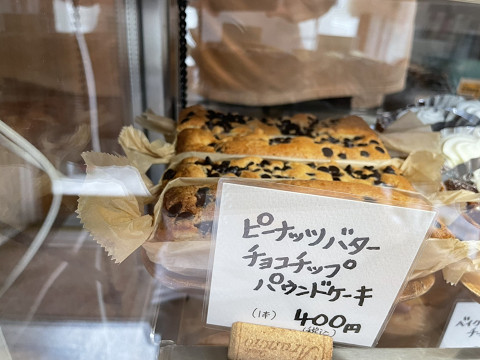 ピーナッツバター
チョコチップ
パウンドケーキ
(1本) 400円
(税込)
ベイク